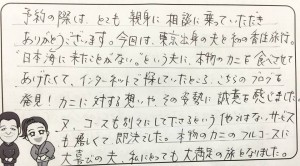 予約の際は、とても親身に相談に乗っていただき
ありがとうございます。今回は、東京出身の夫と初の香住旅行。
"日本海に来たことがない"という夫に、本物のカニを食べさせて
あげたくて、インターネットで探していたところ、こちらのブログを
発見！カニに対する想いや、その姿勢に誠実を感じました。
又、コースも別々にして下さるという他ではないサービス
も嬉しくて即決でした。本物のカニのフルコースに
大喜びの夫、私にとっても大満足の旅となりました。